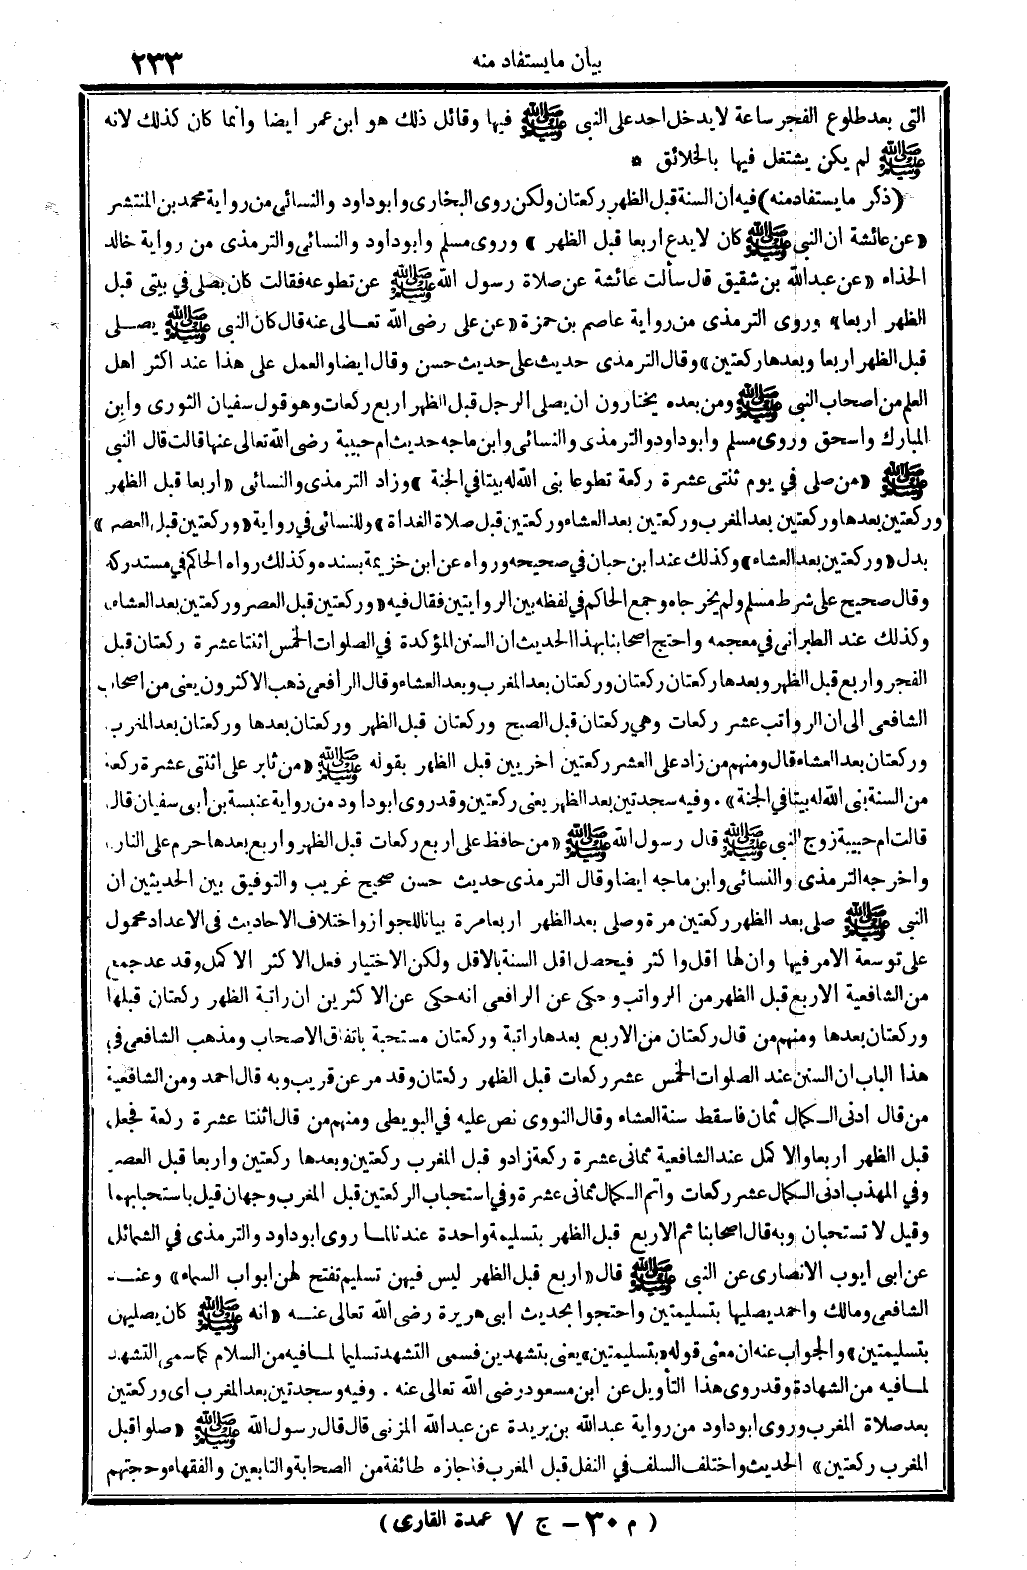 بيان مايستفاد منه ٢٣٣
التى بعد طلوع الفجر ساعة لا يدخل احد على النبى ﷺ فيها وقائل ذلك هو ابن عمر ايضا وانما كان كذلك لانه
ﷺ لم يكن يشتغل فيها بالخلائق *
(ذكر مايستفاد منه) فيه ان السنة قبل الظهر ركعتان ولكن روى البخارى وابو داود والنسائى من رواية محمد بن المنتشر
« عن عائشة ان النبى ﷺ كان لا يدع اربعا قبل الظهر » وروى مسلم وابو داود والنسائى والترمذى من رواية خالد
الحذاء « عن عبد الله بن شقيق قال سألت عائشة عن صلاة رسول الله ﷺ عن تطوعه فقالت كان يصلى فى بيتى قبل
الظهر اربعا » وروى الترمذى من رواية عاصم بن حمزة « عن على رضى الله تعالى عنه قال كان النبى ﷺ يصلى
قبل الظهر اربعا وبعدها ركعتين » وقال الترمذى حديث على حديث حسن وقال ايضا والعمل على هذا عند اكثر اهل
العلم من اصحاب النبى ﷺ ومن بعده يختارون ان يصلى الرجل قبل الظهر اربع ركعات وهو قول سفيان الثورى وابن
المبارك واسحق وروى مسلم وابو داود والترمذى والنسائى وابن ماجه حديث ام حبيبة رضى الله تعالى عنها قالت قال النبى
ﷺ « من صلى فى يوم ثنتى عشرة ركعة تطوعا بنى الله له بيتا فى الجنة » وزاد الترمذى والنسائى « اربعا قبل الظهر
وركعتين بعدها وركعتين بعد المغرب وركعتين بعد العشاء وركعتين قبل صلاة الغداة » وللنسائى فى رواية « وركعتين قبل العصر »
بدل « وركعتين بعد العشاء » وكذلك عند ابن حبان فى صحيحه ورواه عن ابن خزيمة بسنده وكذلك رواه الحاكم فى مستدركه
وقال صحيح على شرط مسلم ولم يخرجاه وجمع الحاكم فى لفظه بين الروايتين فقال فيه « وركعتين قبل العصر وركعتين بعد العشاء»
وكذلك عند الطبرانى فى معجمه واحتج اصحابنا بهذا الحديث ان السنن المؤكدة فى الصلوات الخمس اثنتا عشرة ركعتان قبل
الفجر واربع قبل الظهر وبعدها ركعتان ركعتان وركعتان بعد المغرب وبعد العشاء وقال الرافعى ذهب الاكثرون يعنى من اصحاب
الشافعى الى ان الرواتب عشر ركعات وهى ركعتان قبل الصبح وركعتان قبل الظهر وركعتان بعدها وركعتان بعد المغرب
وركعتان بعد العشاء قال ومنهم من زاد على العشر ركعتين اخريين قبل الظهر بقوله ﷺ « من ثابر على اثنتى عشرة ركعة
من السنة بنى الله له بيتا فى الجنة » . وفيه سجدتين بعد الظهر يعنى ركعتين وقد روى ابو داود من رواية عنبسة بن أبى سفيان قال
قالت ام حبيبة زوج النبى ﷺ قال رسول الله ﷺ « من حافظ على اربع ركعات قبل الظهر واربع بعدها حرم على النار»
واخرجه الترمذى والنسائى وابن ماجه ايضا وقال الترمذى حديث حسن صحيح غريب والتوفيق بين الحديثين ان
النبى ﷺ صلى بعد الظهر ركعتين مرة وصلى بعد الظهر اربعا مرة بيانا للجواز واختلاف الاحاديث فى الاعداد محمول
على توسعة الامر فيها وان لها اقل واكثر فيحصل اقل السنة بالاقل ولكن الاختيار فعل الاكثر الاكمل وقد عد جمع
من الشافعية الاربع قبل الظهر من الرواتب وحكى عن الرافعى انه حكى عن الاكثرين ان راتبة الظهر ركعتان قبلها
وركعتان بعدها ومنهم من قال ركعتان من الاربع بعدها راتبة وركعتان مستحبة باتفاق الاصحاب ومذهب الشافعى فى
هذا الباب ان السنن عند الصلوات الخمس عشر ركعات قبل الظهر ركعتان وقد مر عن قريب وبه قال احمد ومن الشافعية
من قال ادنى الكمال ثمان فاسقط سنة العشاء وقال النووى نص عليه فى البويطى ومنهم من قال اثنتا عشرة ركعة فجعل
قبل الظهر اربعا والاكمل عند الشافعية ثمانى عشرة ركعة زادو قبل المغرب ركعتين وبعدها ركعتين واربعا قبل العصر
وفى المهذب ادنى الكمال عشر ركعات واتم الكمال ثمانى عشرة وفى استحباب الركعتين قبل المغرب وجهان قيل باستحبابهما
وقيل لا تستحبان وبه قال اصحابنا ثم الاربع قبل الظهر بتسليمة واحدة عندنا لما روى ابو داود والترمذى فى الشمائل
عن ابى ايوب الانصارى عن النبى ﷺ قال « اربع قبل الظهر ليس فيهن تسليم تفتح لهن ابواب السماء » وعند
الشافعى ومالك واحمد يصليها بتسليمتين واحتجوا بحديث ابى هريرة رضى الله تعالى عنه « انه ﷺ كان يصليهن
بتسليمتين » والجواب عنه ان معنى قوله « بتسليمتين » يعنى بتشهدين فسمى التشهد تسليما لما فيه من السلام كما سمى التشهد
لما فيه من الشهادة وقد روى هذا التأويل عن ابن مسعود رضى الله تعالى عنه . وفيه وسجدتين بعد المغرب اى وركعتين
بعد صلاة المغرب وروى ابو داود من رواية عبد الله بن بريدة عن عبد الله المزنى قال قال رسول الله ﷺ « صلوا قبل
المغرب ركعتين » الحديث واختلف السلف فى النفل قبل المغرب فاجازه طائفة من الصحابة والتابعين والفقهاء وحجتهم
( م ٣٠ - ج ٧ عمدة القارى )